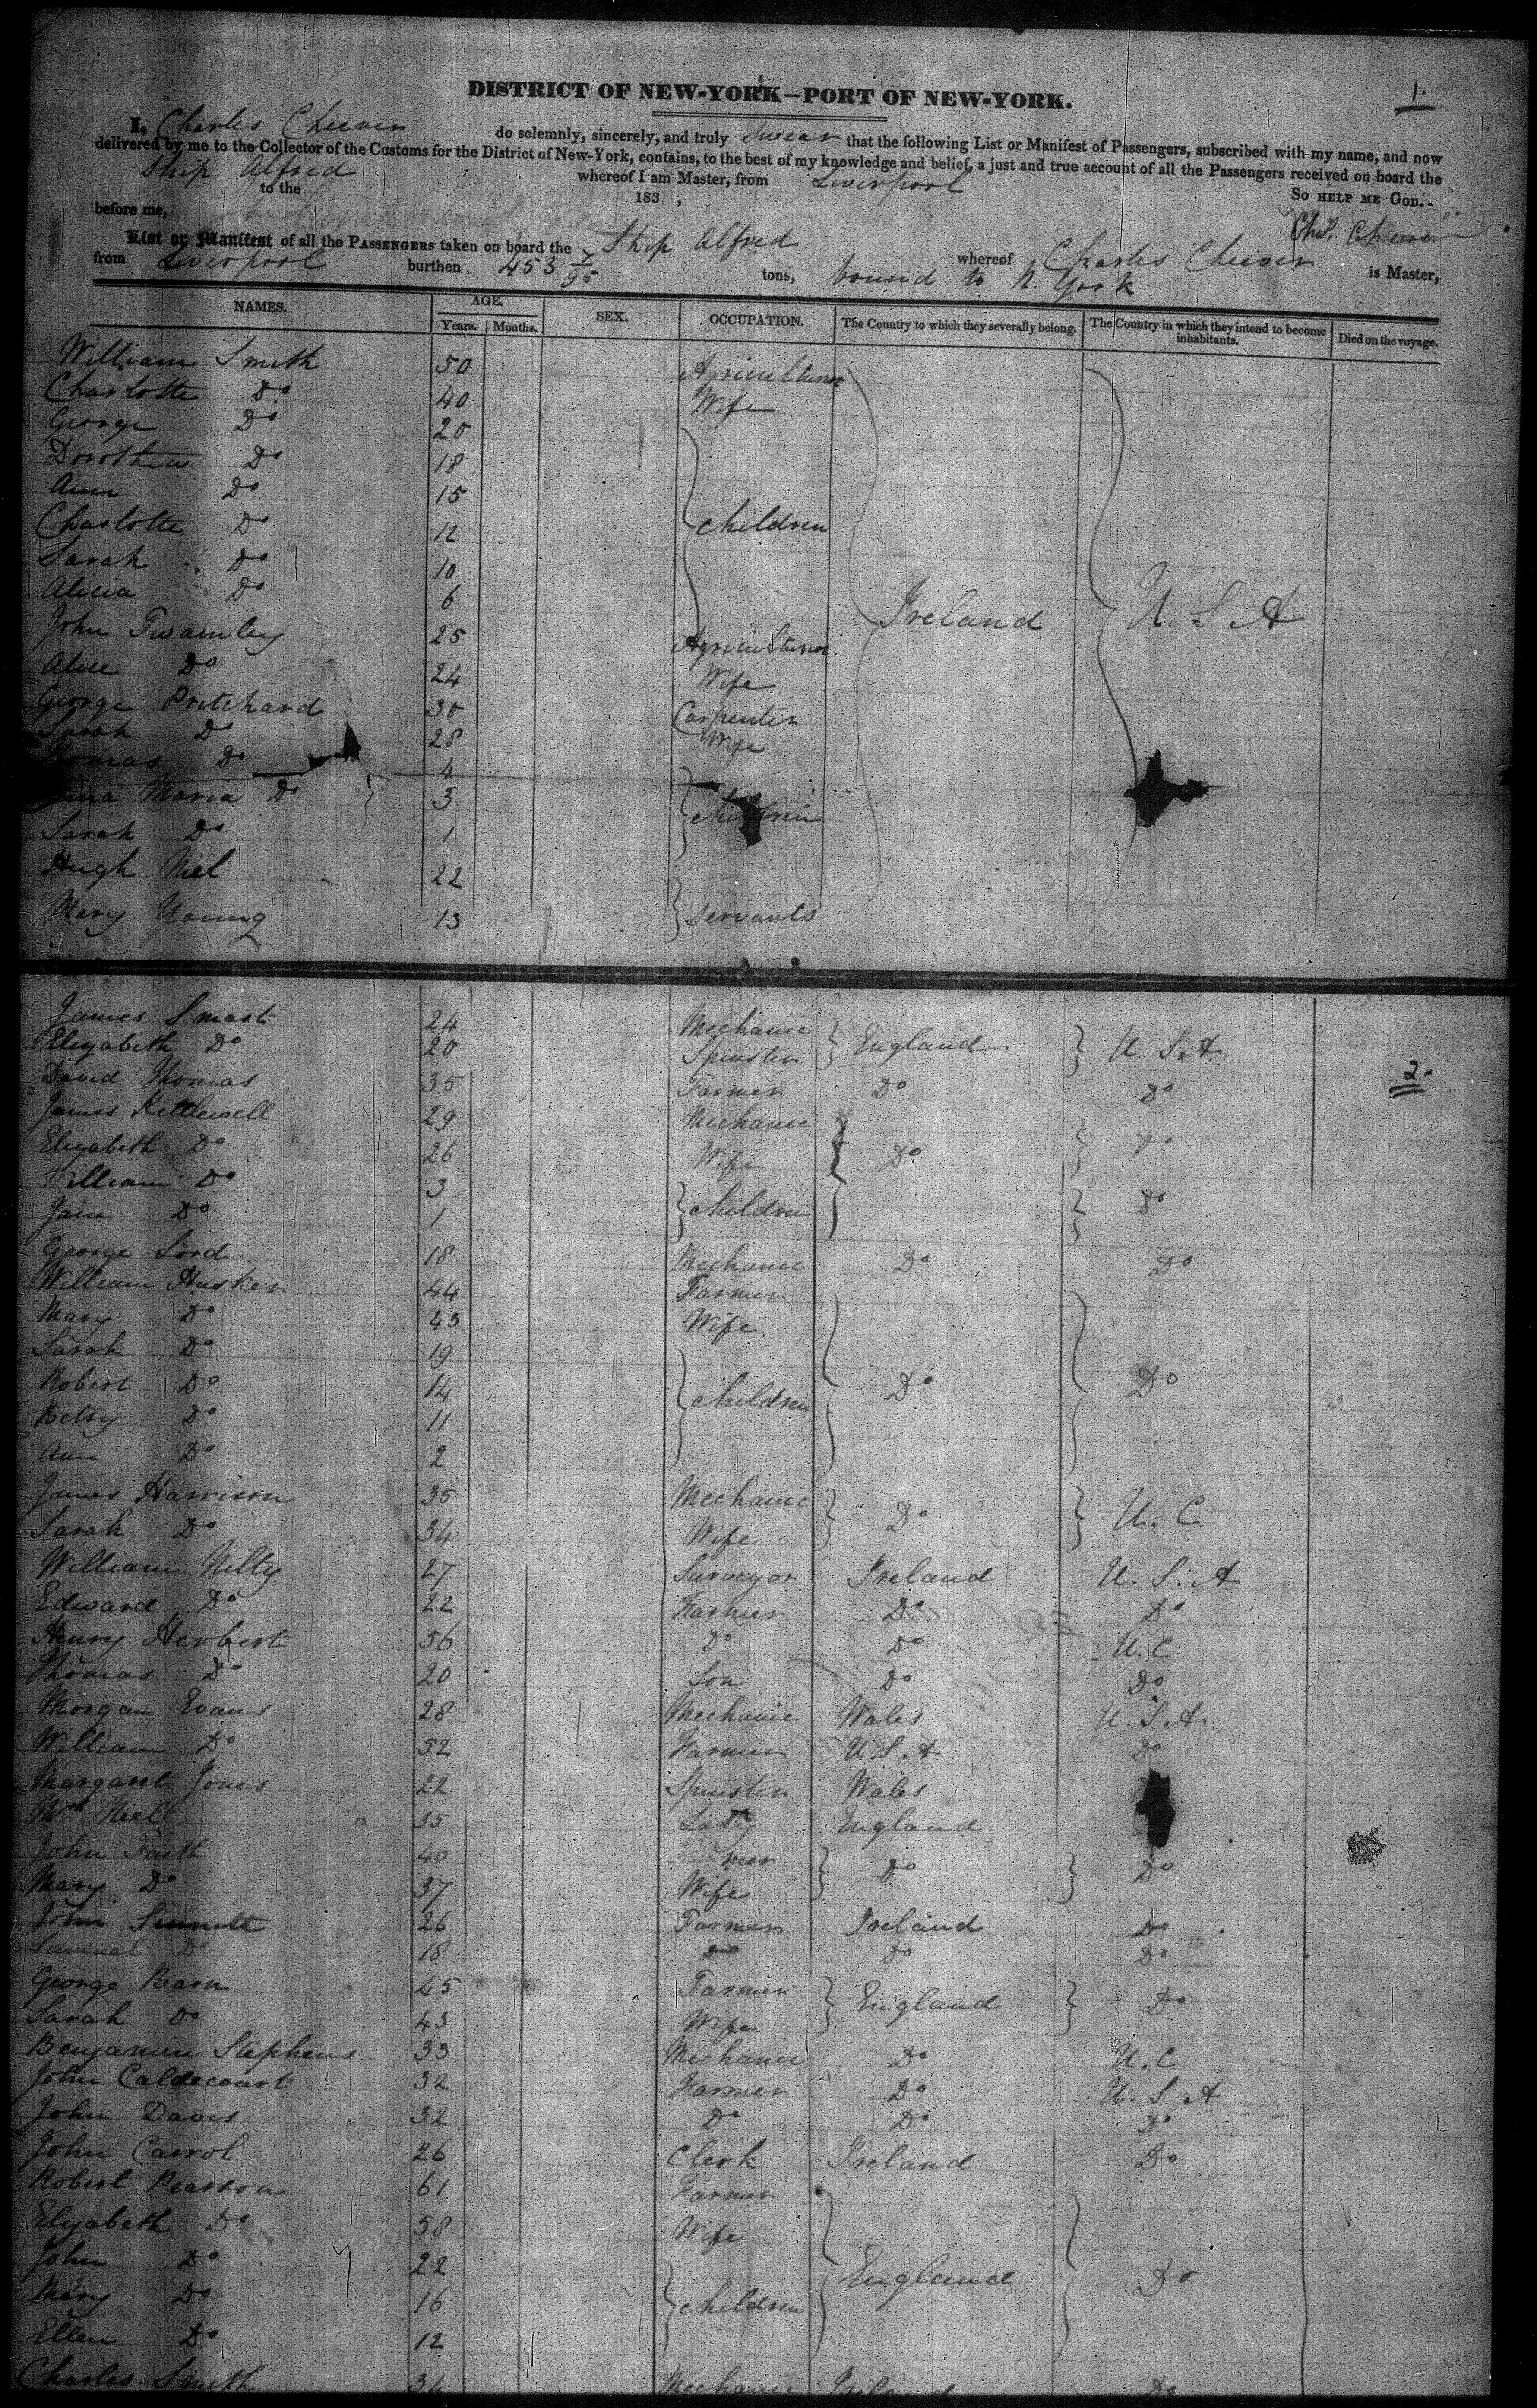 DISTRICT OF NEW-YORK—PORT OF NEW-YORK.
1.
I, Charles Cheever do solemnly, sincerely, and truly swear that the following List or Manifest of Passengers, subscribed with my name, and now
delivered by me to the Collector of the Customs for the District of New-York, contains, to the best of my knowledge and belief, a just and true account of all the Passengers received on board the
Ship Alfred whereof I am Master, from Liverpool
to the 183 , SO HELP ME GOD.
before me, Chs. Cheever
List or Manifest of all the PASSENGERS taken on board the Ship Alfred whereof Charles Cheever is Master,
from Liverpool burthen 453 7/95 tons, bound to N. York
NAMES. AGE. Years. Months. SEX. OCCUPATION. The Country to which they severally belong. The Country in which they intend to become inhabitants. Died on the voyage.
William Smith 50 Agriculturer
Charlotte Do 40 Wife
George Do 20
Dorothea Do 18
Ann Do 15
Charlotte Do 12 children
Sarah Do 10
Alicia Do 6 Ireland U. S. A
John Twamley 25 Agriculturer
Alice Do 24 Wife
George Pritchard 30 Carpenter
Sarah Do 28 Wife
Thomas Do 4
Maria Do 3 children
Sarah Do 1
Hugh Niel 22
Mary Young 13 Servants
James Smart 24 Mechanic England U. S. A.
Elizabeth Do 20 Spinster
2.
David Thomas 35 Farmer Do Do
James Kettlewell 29 Mechanic
Elizabeth Do 26 Wife Do Do
William Do 3
Jane Do 1 children Do
George Lord 18 Mechanic Do Do
William Hasker 44 Farmer
Mary Do 43 Wife
Sarah Do 19
Robert Do 14 children Do Do
Betsy Do 11
Ann Do 2
James Harrison 35 Mechanic Do U. C.
Sarah Do 34 Wife
William Nilty 27 Surveyor Ireland U. S. A
Edward Do 22 Farmer Do Do
Henry Herbert 56 Do Do U. C
Thomas Do 20 Son Do Do
Morgan Evans 28 Mechanic Wales U. S. A.
William Do 52 Farmer U. S. A Do
Margaret Jones 22 Spinster Wales
Niel 35 Lady England
John Faith 40 Farmer Do Do
Mary Do 37 Wife
John 26 Farmer Ireland Do
Samuel Do 18 Do Do Do
George Barn 45 Farmer England Do
Sarah Do 43 Wife
Benjamin Stephens 33 Mechanic Do U. C
John Caldecourt 32 Farmer Do U. S. A
John Davis 32 Do Do Do
John Carrol 26 Clerk Ireland Do
Robert Pearson 61 Farmer
Elizabeth Do 58 Wife
John Do 22 England Do
Mary Do 16 children
Ellen Do 12
Charles Smith 34 Mechanic Ireland Do